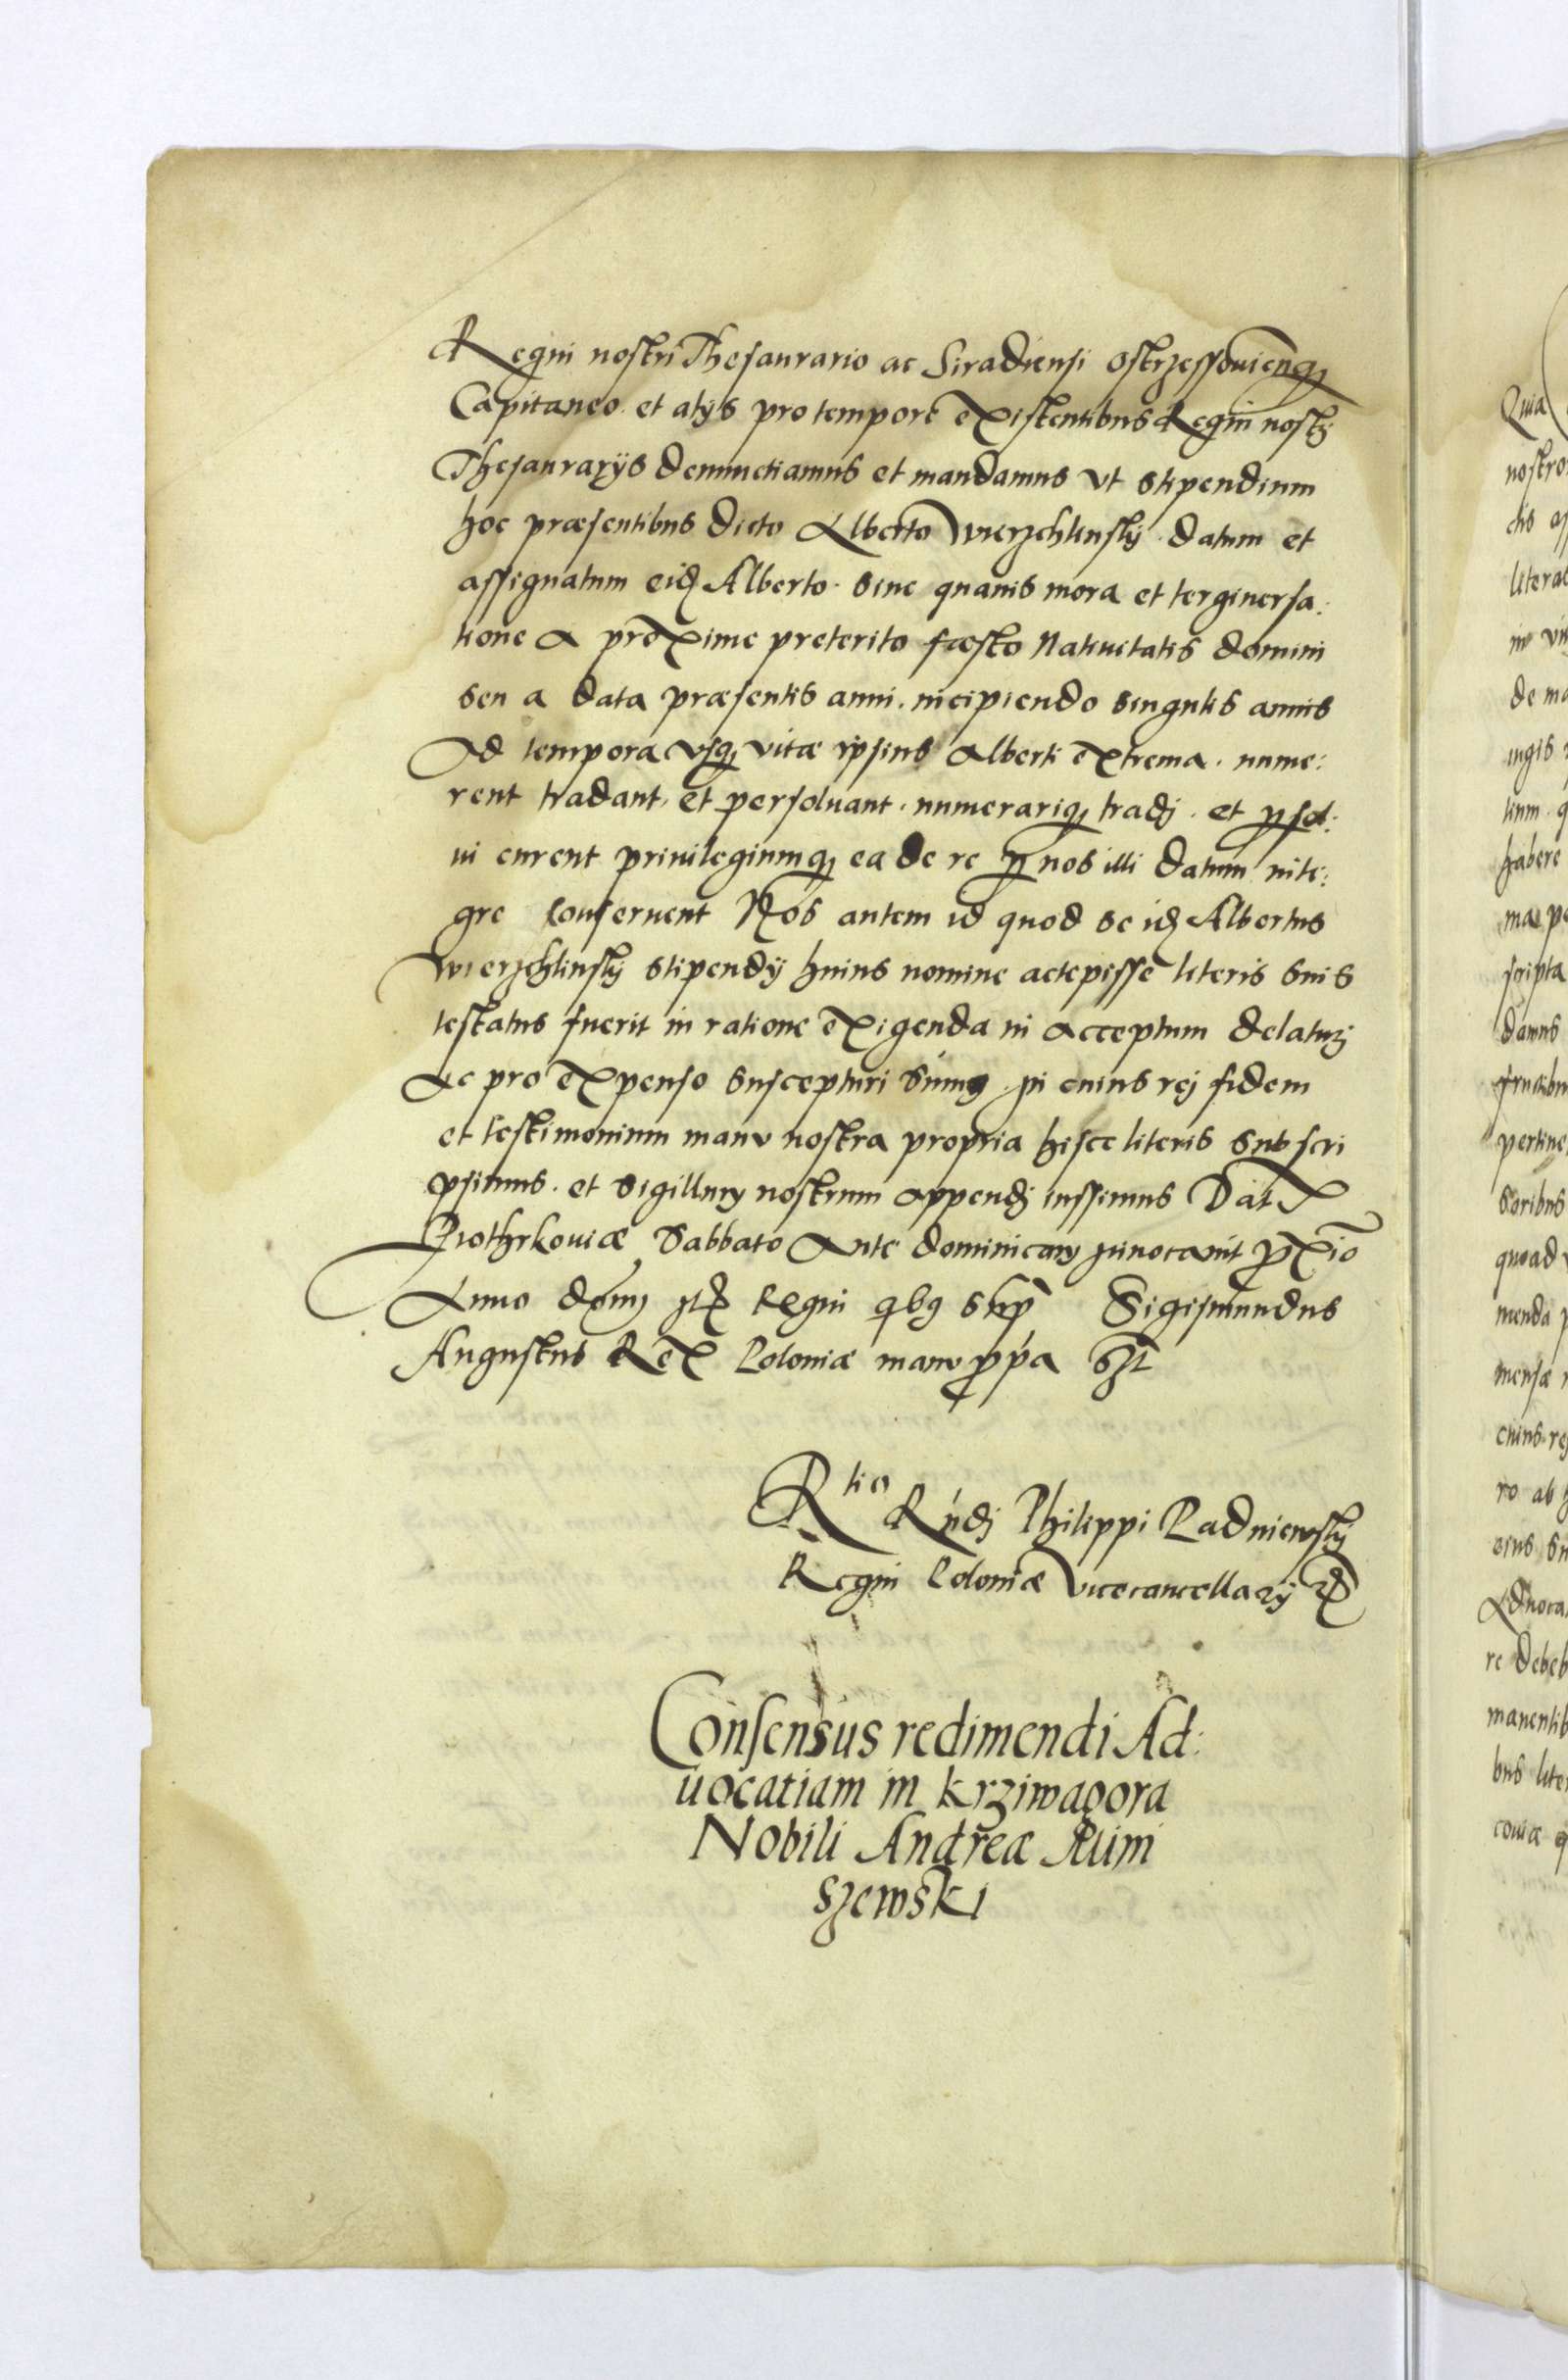 Regni nostri Thesaurario ac Siradiensi Ostrzessouienq3
Capitaneo et alijs pro tempore existentibus Regni nostrj
Thesaurarijs denunctiamus et mandamus vt stipendium
hoc præsentibus dicto Alberto Wierzchlinskij datum et
assignatum eid3 Alberto sine quauis mora et terginersa:
tione a proxime preterito fæsto Natiuitatis domini
seu a data præsentis anni incipiendo singulis annis
Ad tempora vsq3 vitæ ipsius Alberti extrema nume:
rent tradant et persoluant numerariq3 tradj et psol:
ui curent priuilegiumq3 ea de re p nos illi datum inte:
gre conseruent Nos autem id quod se id3 Albertus
Wierzchlinskij stipendij huius nomine accepisse literis suis
testatus fuerit in ratione exigenda in acceptum delaturj
Ac pro expenso suscepturi sumus in cuius rej fidem
et testimonium manu nostra propria hisce literis subscri
psimus et sigillum nostrum appendj iussimus Dat
Piothrkouiæ Sabbato Ante dominicam Inuocauit pxio
Anno domj Regni qbus supra Sigismundus
Augustus Rex Poloniæ manu ppa sszt
Rtio Rndj Philippi Padniewskij
Regni Poloniæ vicecancellarij
Consensus redimendi Ad:
uocatiam in Krziwagora
Nobili Andreæ Rlimi
szewski
Quia
nostro
literas
de ma
habere
scripta
damus
pertine
quoad
menda
mensæ
cuius rej
ro ab
eius su
re debeb
manentib
bus liter
couiæ